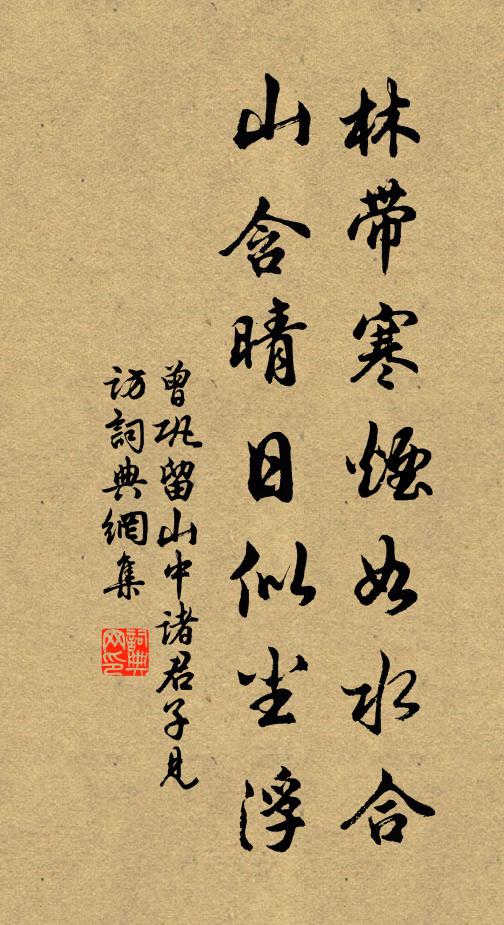 林帶寒煙如水合
山含晴日似尘浮
曾巩留山中諸君子見
訪詞典網集
詞典
网印